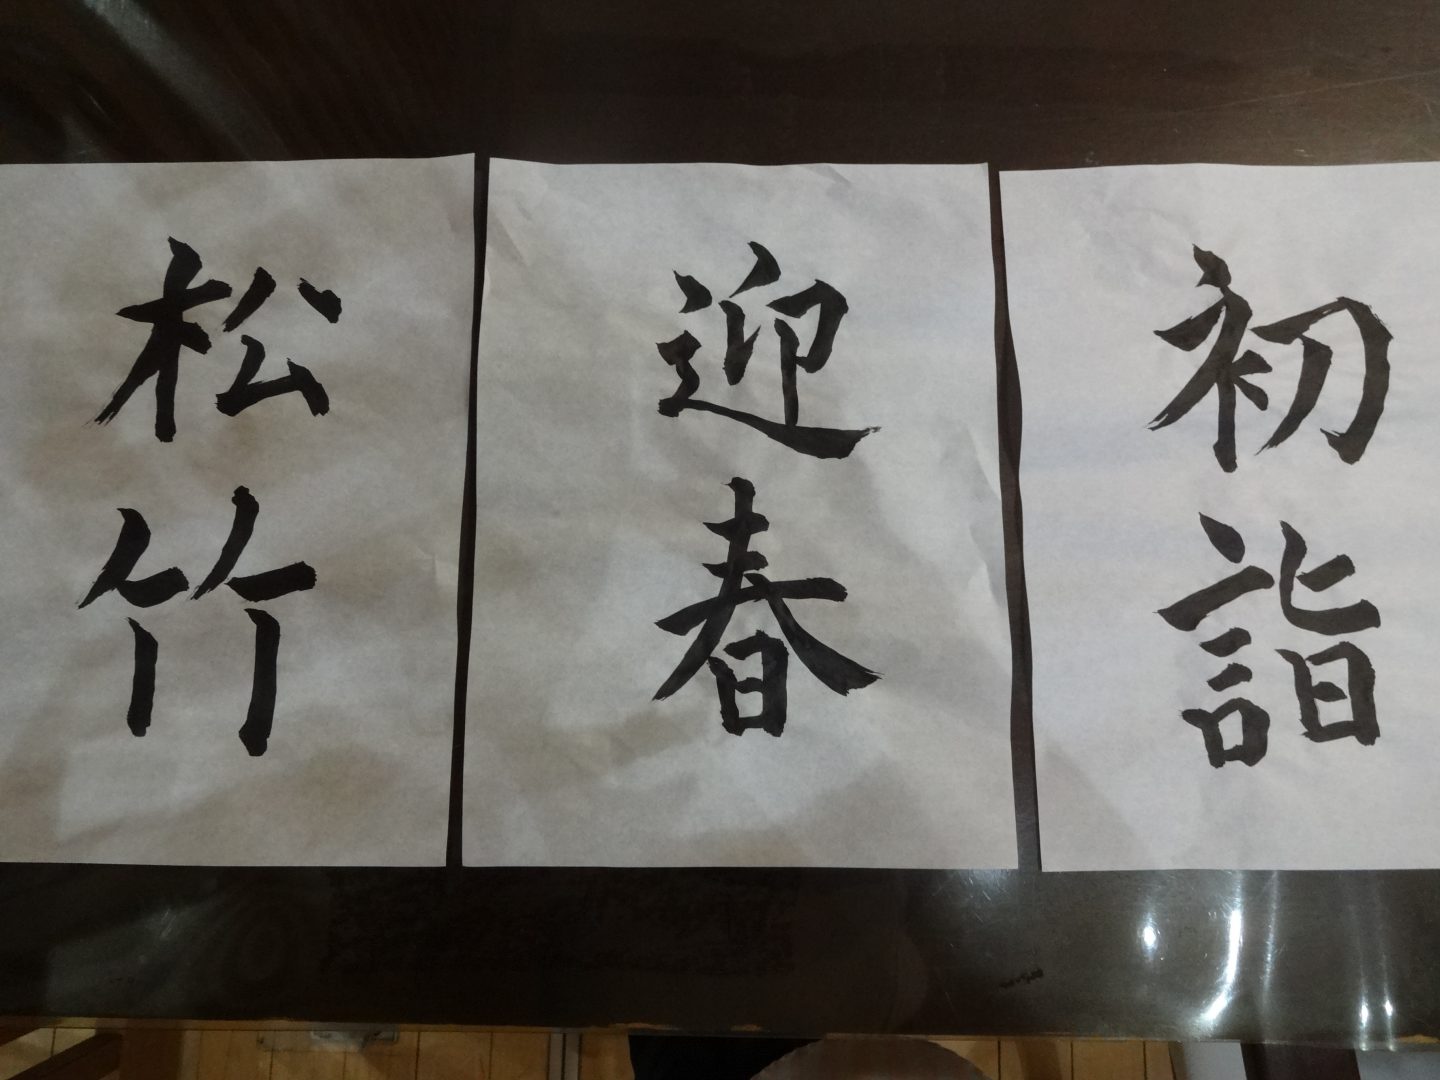 初詣
迎春
松竹